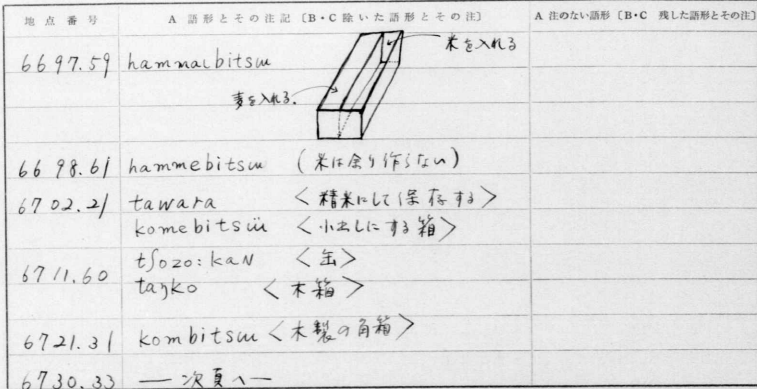 地点番号 A 語形とその注記〔B・C除いた語形とその注〕 A 注のない語形〔B・C 残した語形とその注〕
米を入れる
6697.59 hammaɩbitsɯ
麦を入れる.
6698.61 hammebitsɯ (米は余り作らない)
6702.21 tawara <精米にして保存する>
komebitsɯ̈ <小出しにする箱>
6711.60 tʃozo:kaɴ <缶>
taŋko <木箱>
6721.31 kombitsɯ <木製の角箱>
6730.33 ― 次頁へ ―